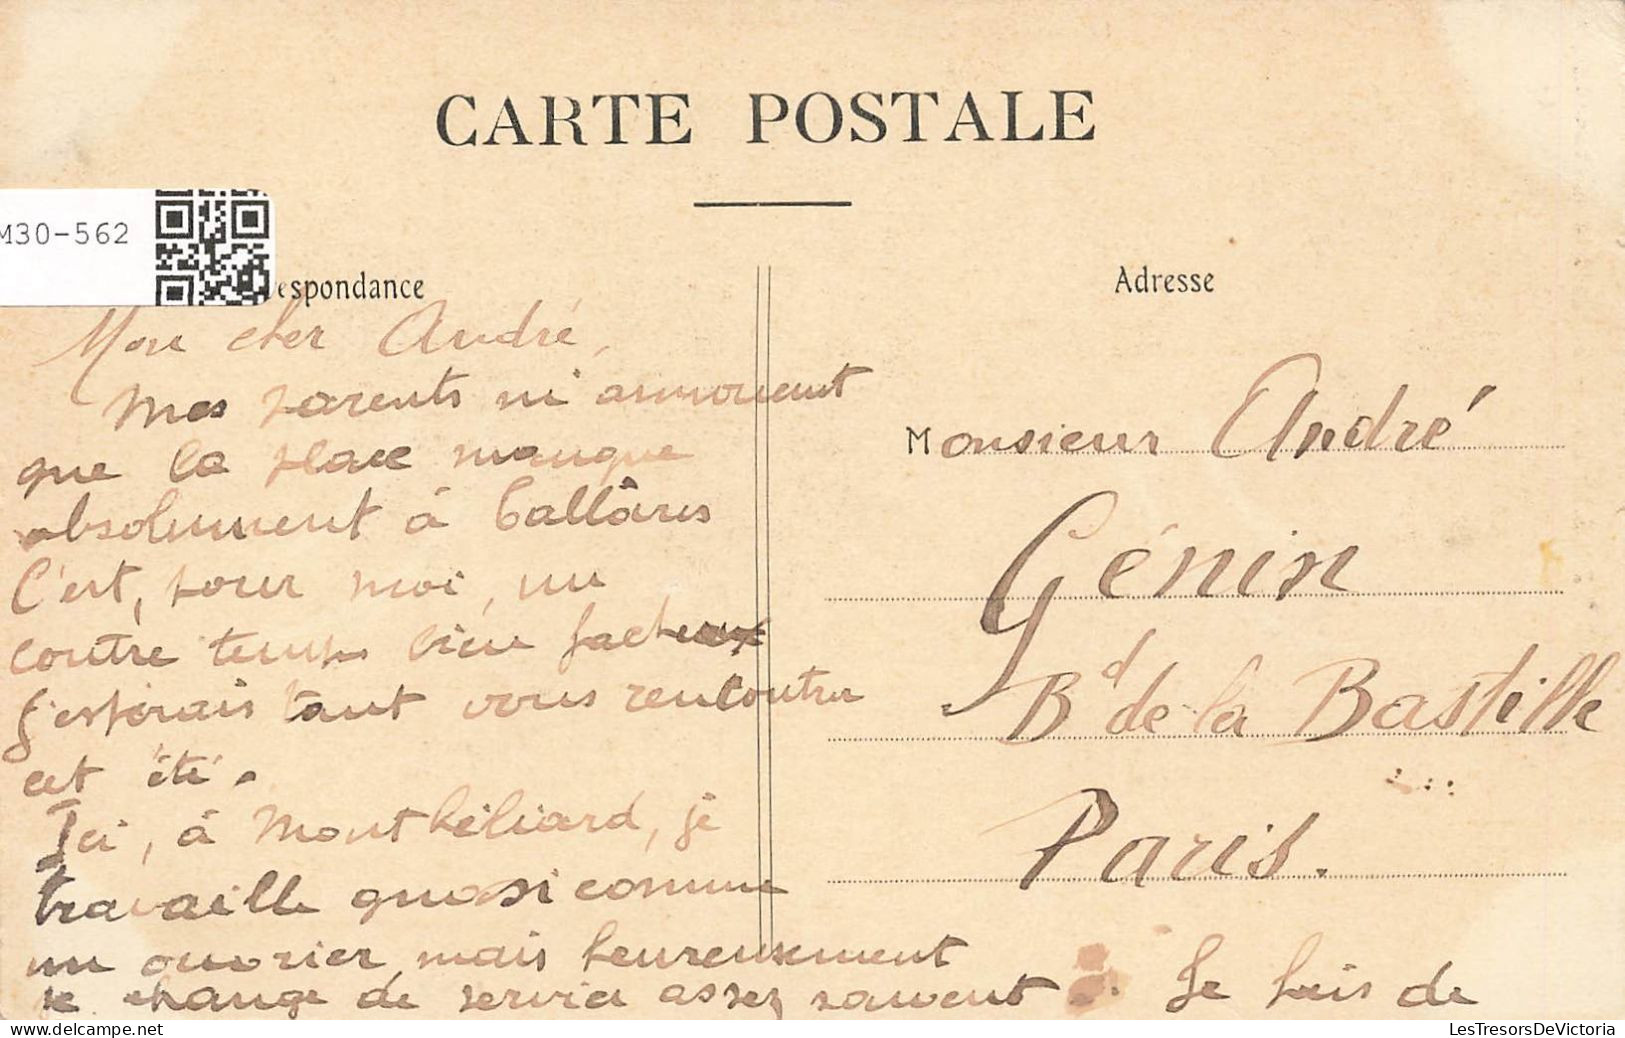 CARTE POSTALE
M30-562
espondance
Adresse
Mon cher André,
Mes parents m'annoncent
que la place manque
absolument à
C'est, pour moi, un
contre temps bien facheux
J'espérais tant vous rencontrer
cet été.
Ici, à Montbéliard, je
travaille quasi comme
un ouvrier, mais heureusement
je change de service assez souvent. Je fais de
Monsieur André
Génin
Bd de la Bastille
Paris.
LesTresorsDeVictoria.com